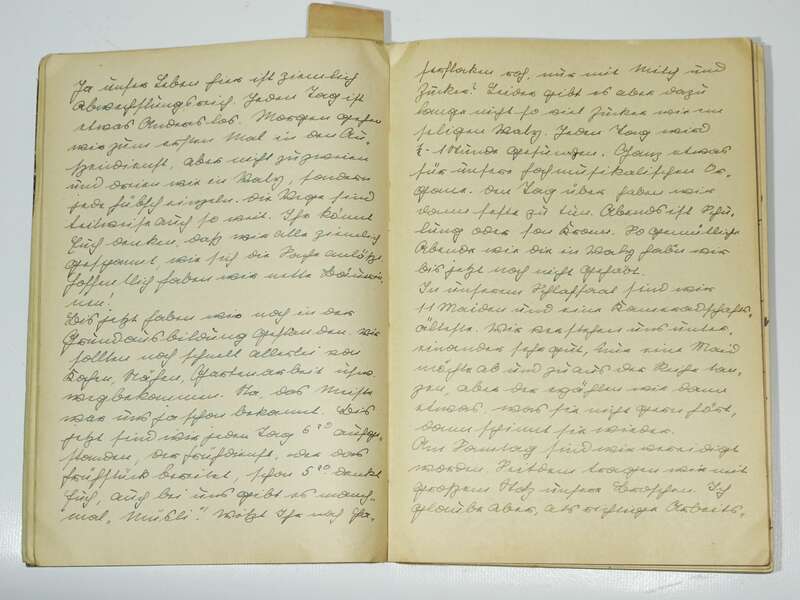 Ja unser Leben hier ist ziemlich
abwechslungsreich. Jeden Tag ist
etwas Anderes los. Morgen gehen
wir zum ersten Mal in den Au-
ßendienst, aber nicht zu zweien
und dreien wie in Walz, sondern
jede hübsch einzeln. Die Wege sind
teilweise auch so weit. Ihr könnt
Euch denken, daß wir alle ziemlich
gespannt, wie sich die Sache anläßt.
Hoffentlich haben wir nette Bäuerin-
nen!
Bis jetzt haben wir noch in der
Grundausbildung gestanden. Wir
sollten noch schnell allerlei von
Kochen, Nähen, Gartenarbeit usw.
wegbekommen. Na, das Meiste
war uns ja schon bekannt. Bis
jetzt sind wir jeden Tag 6 30 aufge-
standen, der Frühdienst, der das
Frühstück bereitet, schon 5 30. Denkt
Euch, auch bei uns gibt es manch-
mal „Müsli“. Wißt Ihr noch Ha-
ferflocken roh, nur mit Milch und
Zucker! Leider gibt es aber dazu
lange nicht so viel Zucker wie im
seligen Walz. Jeden Tag wird
½ - 1 Stunde gesungen. Ganz etwas
für unsere hochmusikalischen Or-
gane. Den Tag über haben wir
dann feste zu tun. Abends ist Schu-
lung oder so Kram. So gemütliche
Abende wie die in Walz haben wir
bis jetzt noch nicht gehabt.
In unserem Schlafsaal sind wir
11 Maiden und eine Kameradschafts-
älteste. Wir verstehen uns unter-
einander sehr gut, nur eine Maid
möchte ab und zu aus der Reihe tan-
zen, aber der erzählen wir dann
etwas, was sie nicht gern hört,
dann spinnt sie wieder.
Am Sonntag sind wir vereidigt
worden. Seitdem tragen wir mit
großem Stolz unsere Broschen. Ich
glaube aber, als richtige Arbeits-